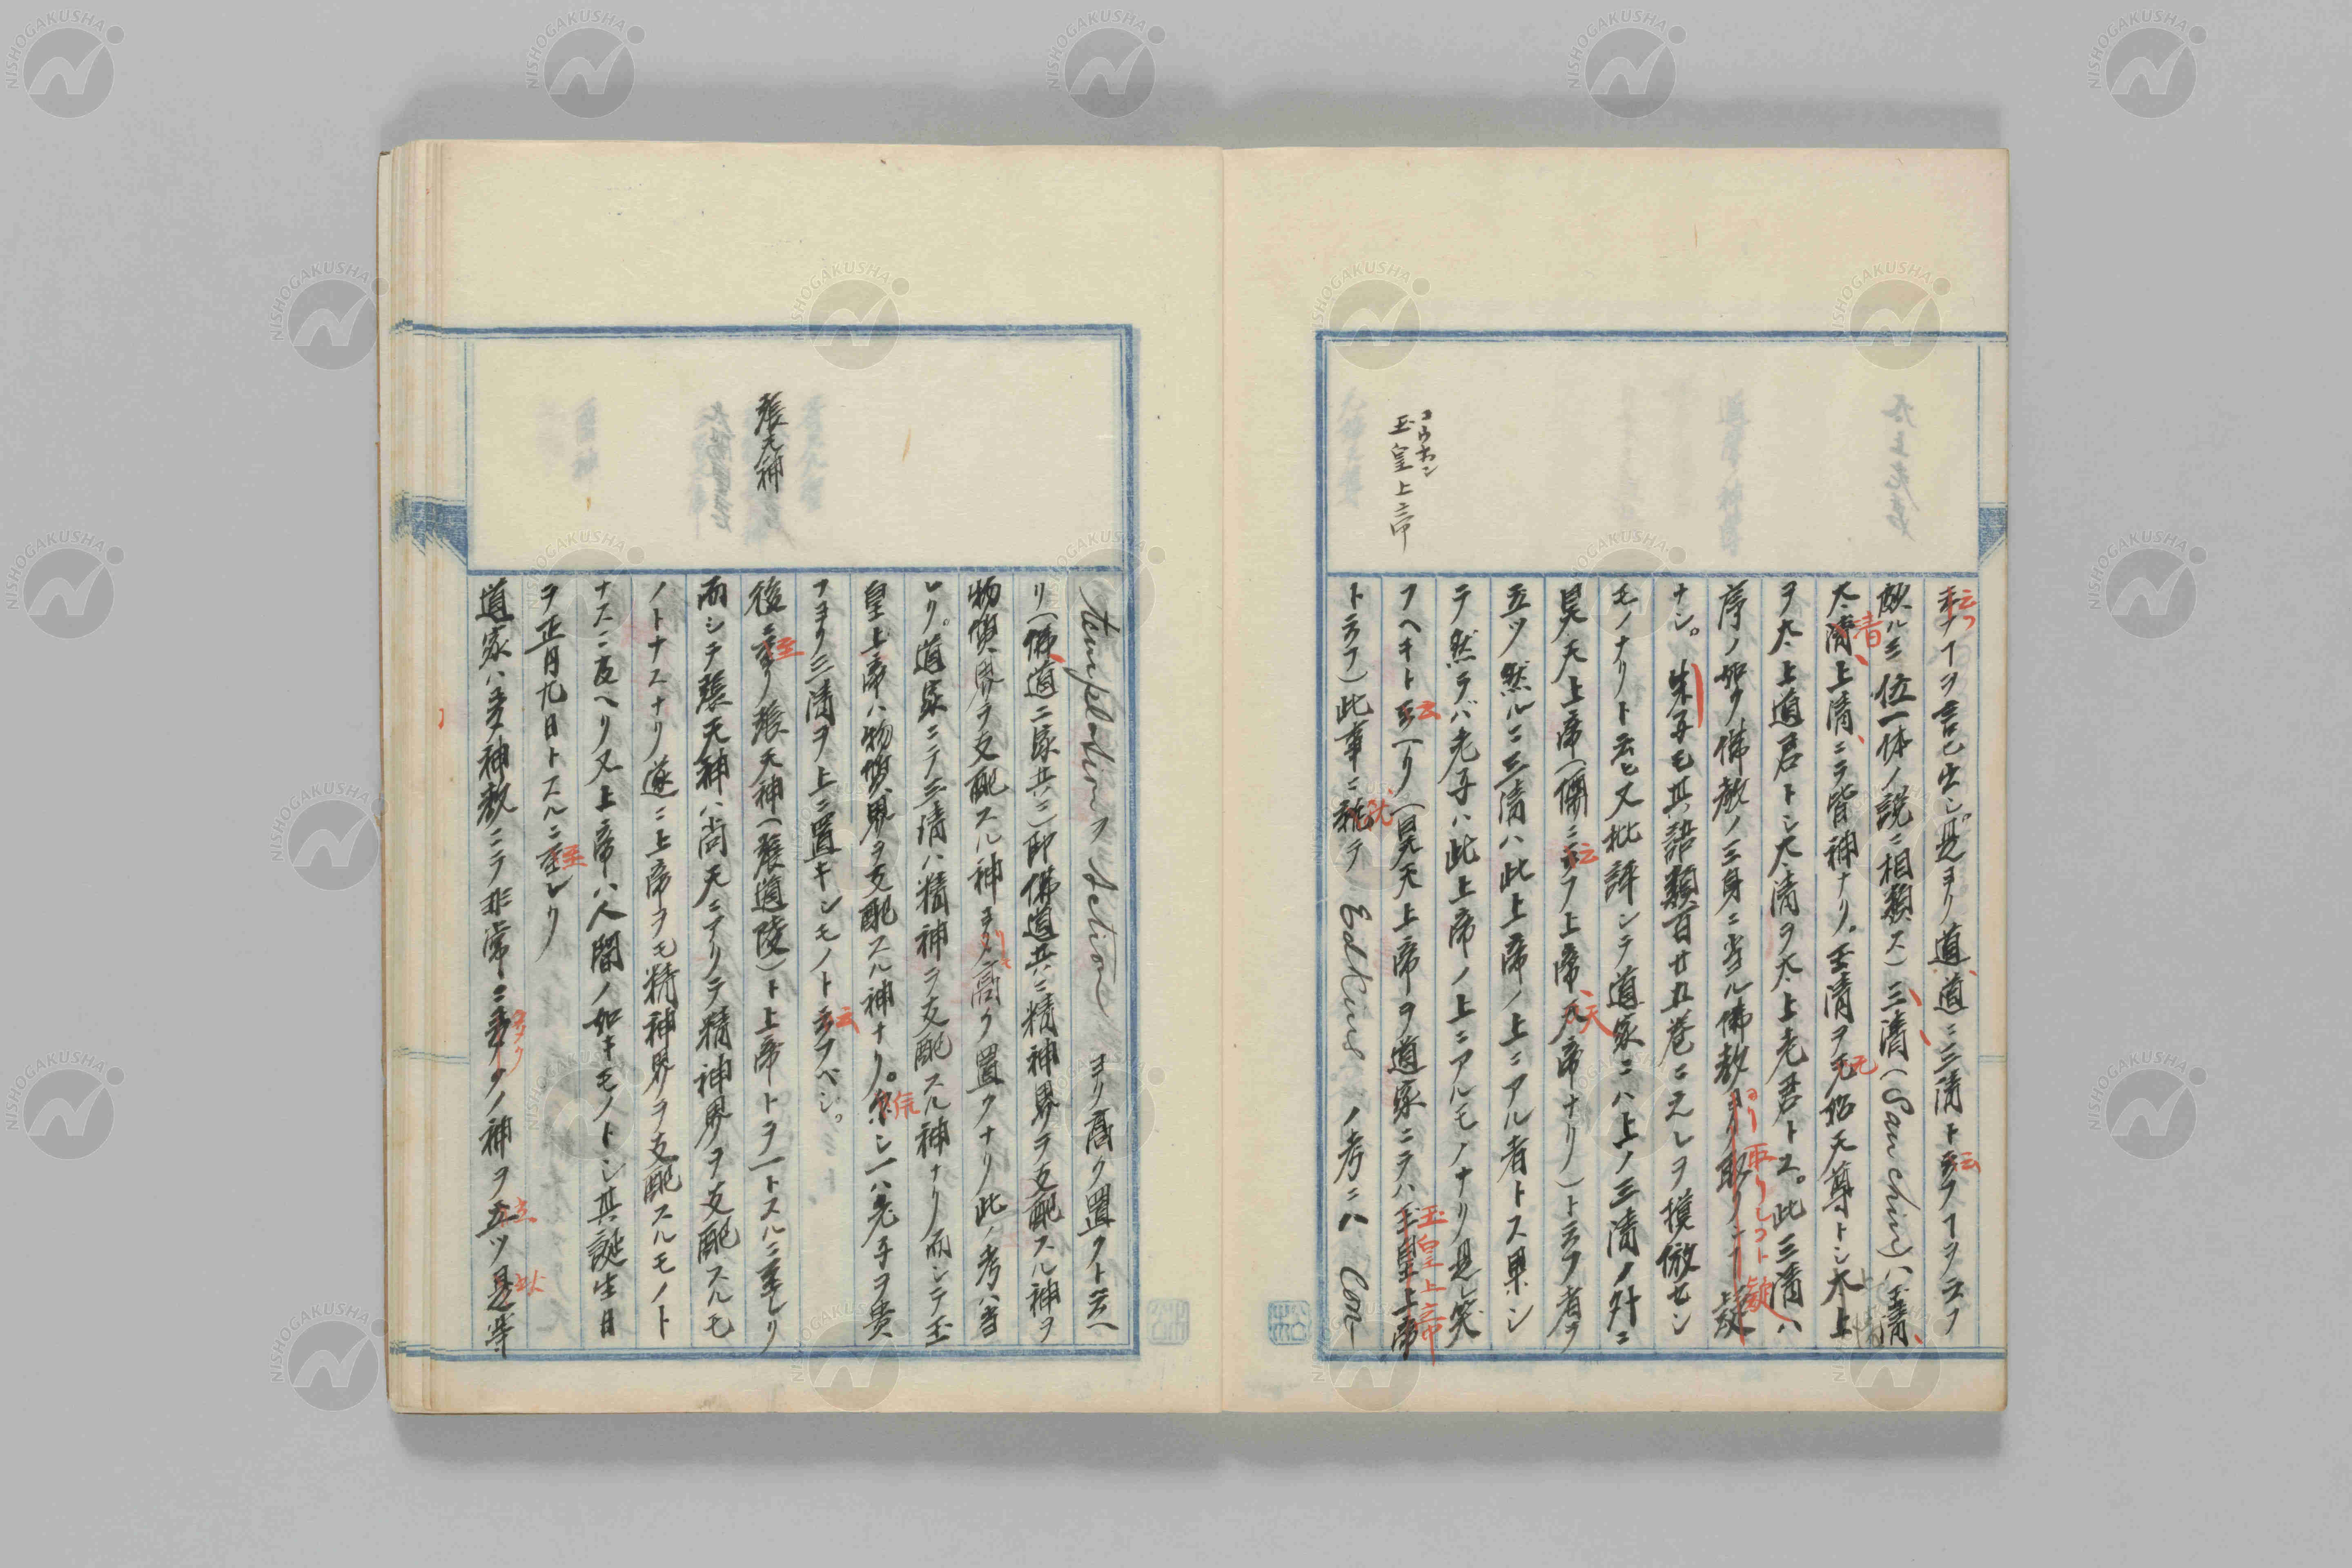 玉皇上帝
コウホン
云フヿヲ言ヒ出シ是ヨリ道道ニ三清ト云フヿヲ云フ
敵ル三位一体ノ説ニ相類ス)三清(San chin)ハ玉清、
太清、上清、ニテ皆神ナリ。玉清ヲ元始天尊トシ太上
ヲ太上道君トシ太清ヲ太上老君トス。此三清ハ
序ノ如ク佛教ノ三身ニ当ル佛教ヨリ取リシヿト疑
ナシ。朱子モ其語類百廿五巻ニ之レヲ摸倣セシ
モノナリト云ヒ又批評シテ道家ニハ上ノ三清ノ外ニ
昊天上帝(儒ニ云フ上帝、天帝ナリ)ト云フ者ヲ
立ツ然ルニ三清ハ此上帝ノ上ニアル者トス果シ
テ然ラバ老子ハ此上帝ノ上ニアルモノナリ是レ笑
フヘキト云ヘリ(昊天上帝ヲ道家ニテハ玉皇上帝
ト云フ)此事ニ就テ Edkins ノ考ニハ Con-
張天神
templation ヲ Action ヨリ高ク置クト云ヘ
リ(佛道二家共ニ)即佛道共ニ精神界ヲ支配スル神ヲ
物質界ヲ支配スル神ヨリモ高ク置クナリ此ノ考ハ当
レリ。道家ニテ三清ハ精神ヲ支配スル神ナリ而シテ玉
皇上帝ハ物質界ヲ支配スル神ナリ。然シ一ハ老子ヲ貴
フヨリ三清ヲ上ニ置キシモノト云フベシ。
後ニ至リ張天神(張道陵)ト上帝トヲ一トスルニ至レリ
而シテ張天神ハ尚天ニアリテ精神界ヲ支配スルモ
ノトナスナリ遂ニ上帝ヲモ精神界ヲ支配スルモノト
ナスニ及ヘリ又上帝ハ人間ノ如キモノトシ其誕生日
ヲ正月九日トスルニ至レリ
道家ハ多神教ニテ非常ニ多クノ神ヲ立ツ是等